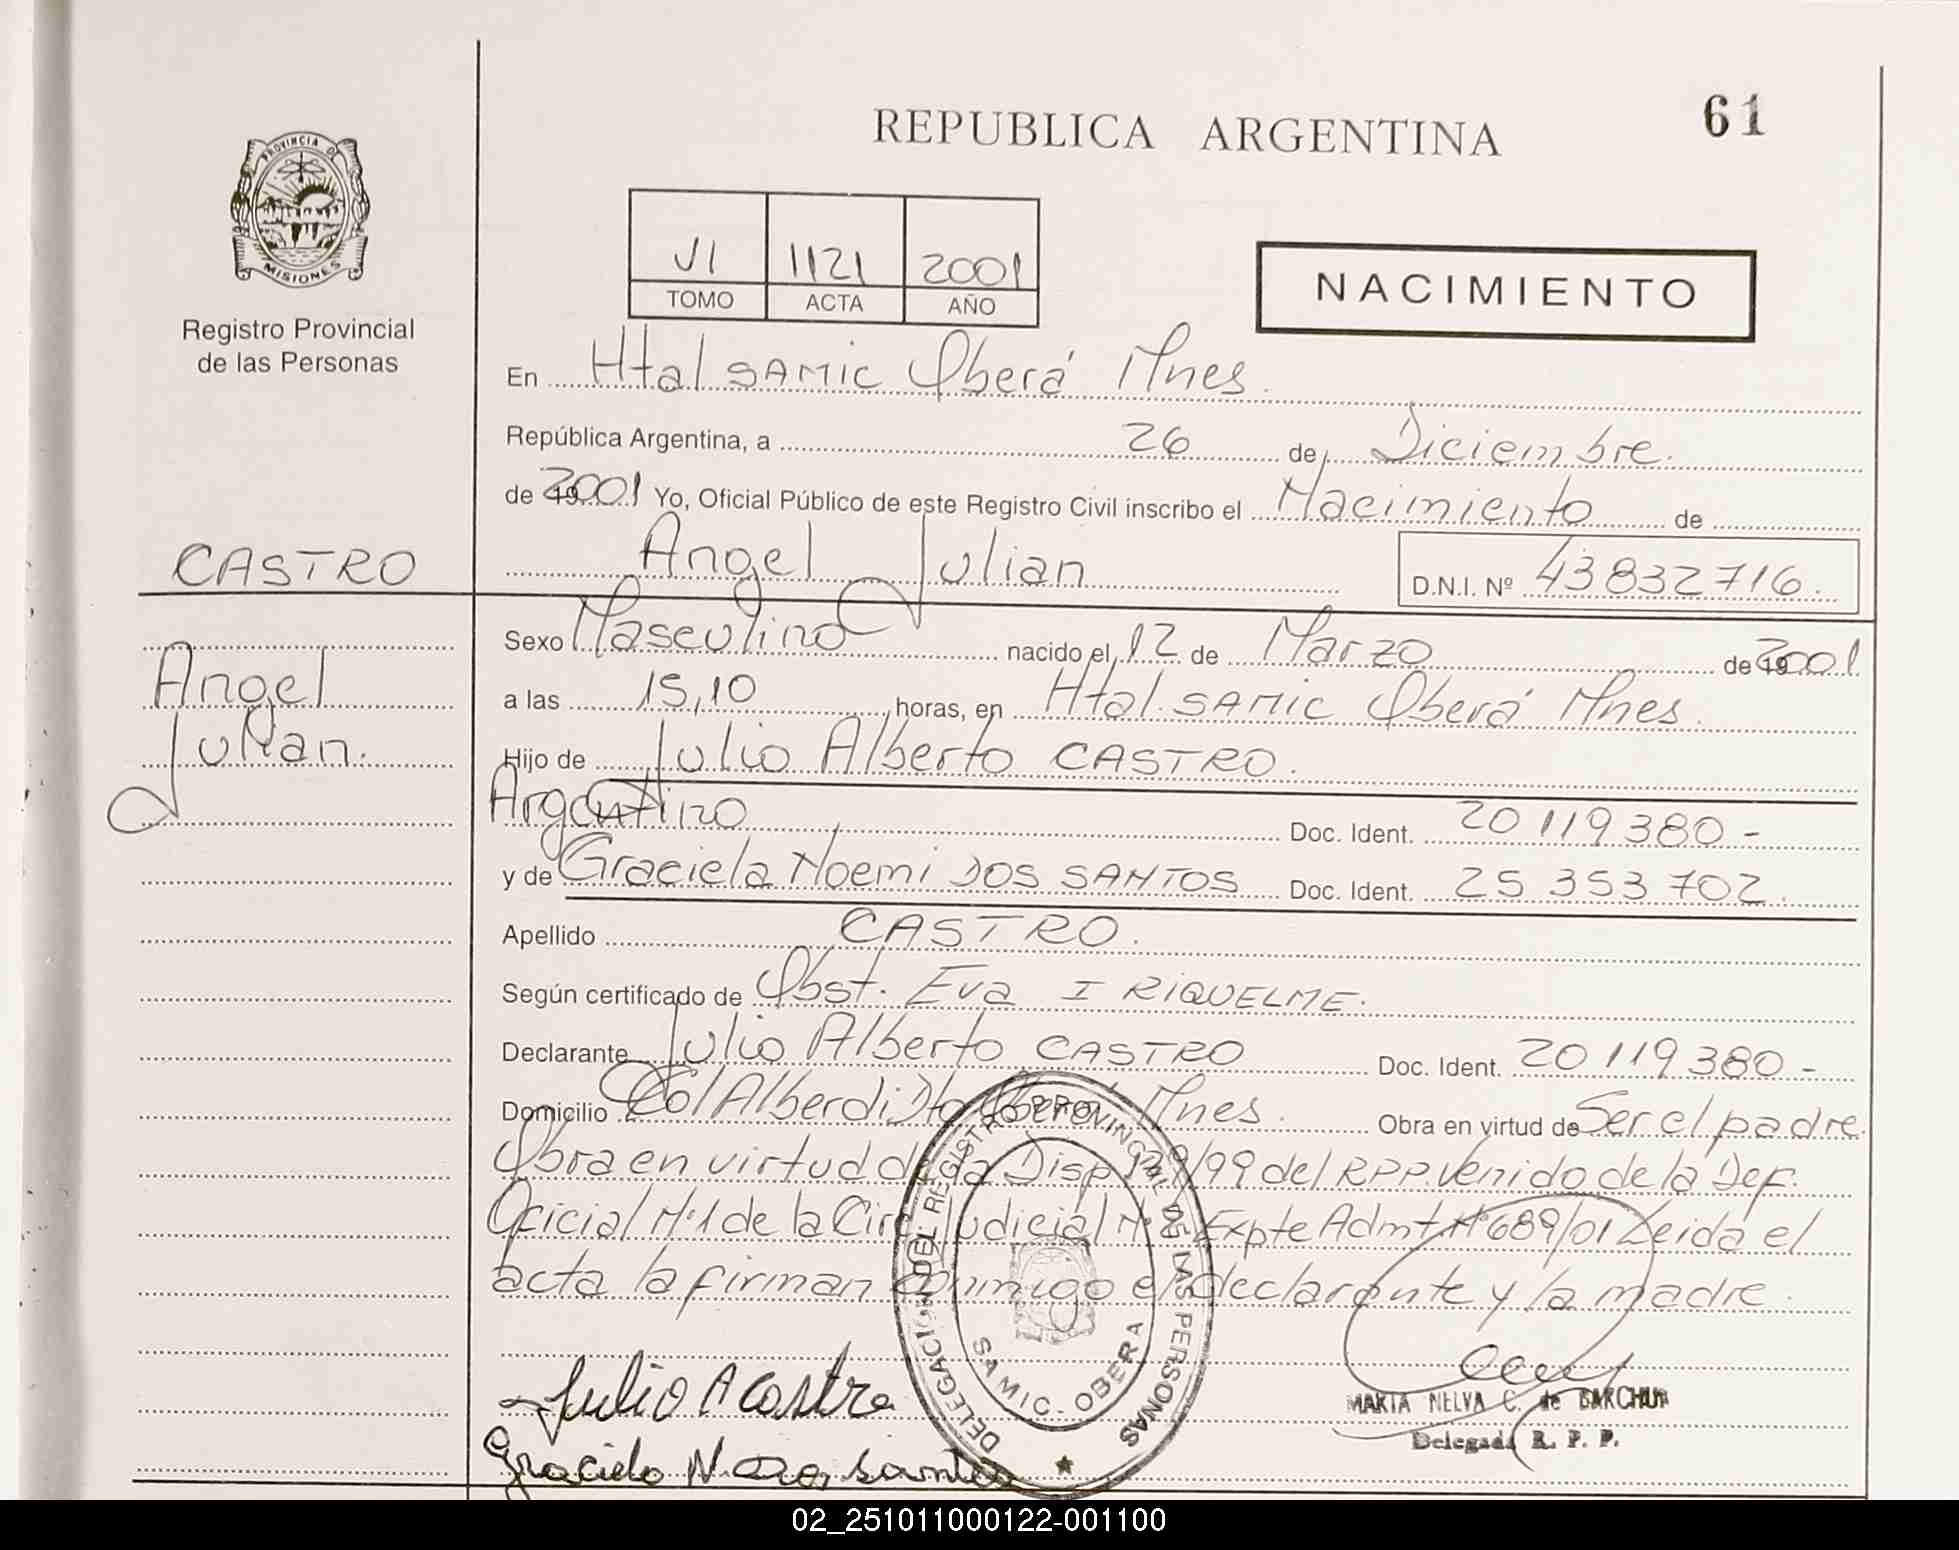 REPUBLICA ARGENTINA
61
PROVINCIA DE
MISIONES
Registro Provincial
de las Personas
VI 1121 2001
TOMO ACTA AÑO
NACIMIENTO
En Htal SAMIC Oberá Mnes.
República Argentina, a 26 de Diciembre.
de 2001 Yo, Oficial Público de este Registro Civil inscribo el Nacimiento de
CASTRO
Angel Julian
D.N.I. Nº 43832716.
Angel
Julian.
Sexo Masculino nacido el 12 de Marzo de 2001
a las 15,10 horas, en Htal. SAMIC Oberá Mnes.
Hijo de Julio Alberto CASTRO.
Argentino Doc. Ident. 20 119 380 -
y de Graciela Noemi DOS SANTOS Doc. Ident. 25 353 702.
Apellido CASTRO.
Según certificado de Obst. Eva I RIQUELME.
Declarante Julio Alberto CASTRO Doc. Ident. 20 119 380 -
Domicilio Col Alberdi Dto Oberá Mnes. Obra en virtud de Ser el padre.
Obra en virtud de la Disp /99 del RPP. Venido de la Def.
Oficial Nº 1 de la Circ Judicial Nº Expte Admt. Nº 689/01 Leida el
acta la firman conmigo el declarante y la madre.
DELEGACION DEL REGISTRO PROVINCIAL DE LAS PERSONAS
SAMIC - OBERA
Julio A Castro
Graciela N. Dos santos
MARIA NELVA C. de
Delegada R. P. P.
02_251011000122-001100